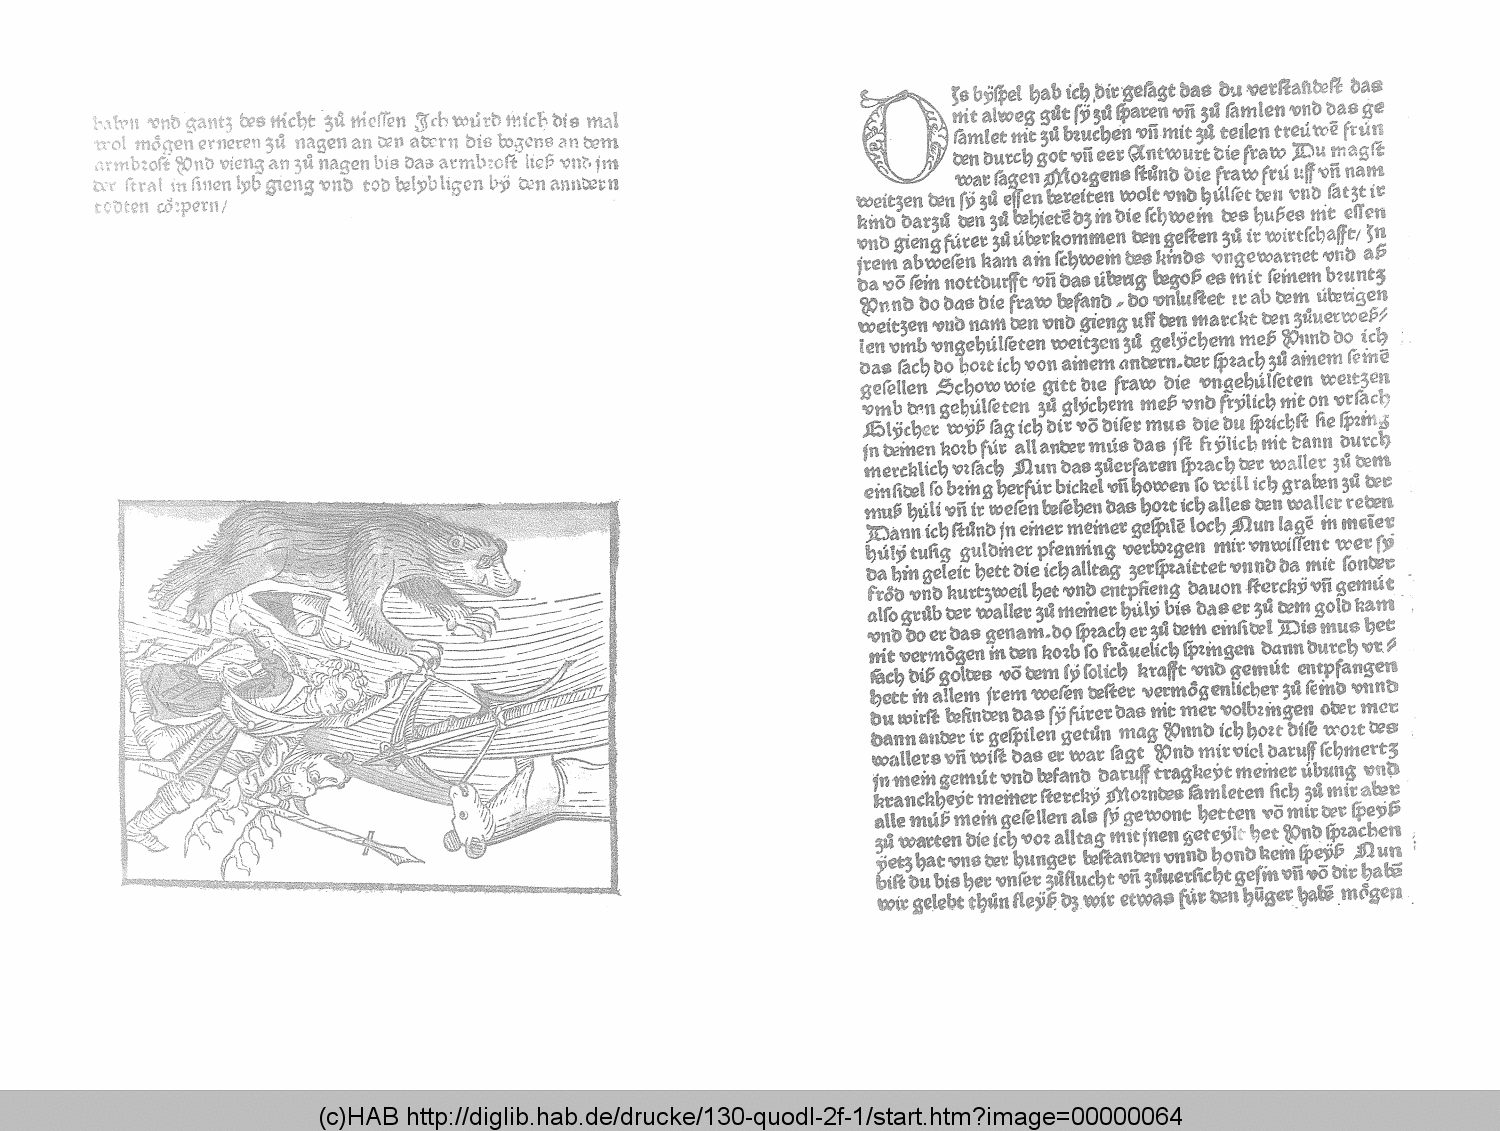 haben vnd gantz des nicht zů niessen Ich wúrd mich dis mal
wol mo̊gen erneren zů nagen an den adern dis bogens an dem
armbꝛost Vnd vieng an zů nagen bis das armbꝛost ließ vnd im
der stral in sinen lyb gieng vnd tod belyb ligen bÿ den anndern
todten co̊ꝛpern/
DIs bÿspel hab ich dir gesagt das du verstandest das
nit alweg gůt sÿ zů sparen vñ zů samlen vnd das ge
samlet nit zů bꝛuchen vñ mit zů teilen treúwē frún
den durch got vñ eer Antwurt die fraw Du magst
war sagen Moꝛgens stůnd die fraw frú uff vñ nam
weitzen den sÿ zů essen bereiten wolt vnd húlset den vnd satzt ir
kind darzů den zů behietē dz in die schwein des hußes nit essen
vnd gieng fúrer zů úberkommen den gesten zů ir wirtschafft/ In
irem abwesen kam ain schwein des kinds vngewarnet vnd aß
da võ sein nottdurfft vñ das úberig begoß es mit seinem bꝛuntz
Vnnd do das die fraw befand, do vnlustet ir ab dem úberigen
weitzen vnd nam den vnd gieng uff den marckt den zůuerweß/
len vmb vngehúlseten weitzen zů gelÿchem meß Vnnd do ich
das sach do hoꝛt ich von ainem andern.der spꝛach zů ainem seinē
gesellen Schow wie gitt die fraw die vngehúlseten weitzen
vmb den gehúlseten zů glÿchem meß vnd frÿlich nit on vrsach
Glÿcher wÿß sag ich dir võ diser mus die du spꝛichst sie spꝛing
in deinen koꝛb fúr all ander mús das ist frÿlich nit dann durch
mercklich vꝛsach Nun das zůerfaren spꝛach der waller zů dem
einsidel so bꝛing herfúr bickel vñ howen so will ich graben zů der
muß húli vñ ir wesen besehen das hoꝛt ich alles den waller reden
Dann ich stůnd in einer meiner gespilē loch Nun lagē in meier
húlÿ tusig guldiner pfenning verboꝛgen mir vnwissent wer sÿ
da hin geleit hett die ich alltag zerspꝛaittet vnnd da mit sonder
fro̊d vnd kurtzweil het vnd entpfieng dauon sterckÿ vñ gemút
also grůb der waller zů meiner húlÿ bis das er zů dem gold kam
vnd do er das genam.do spꝛach er zů dem einsidel Dis mus het
nit vermo̊gen in den koꝛb so fra̋uelich spꝛingen dann durch vr/
sach diß goldes võ dem sÿ solich krafft vnd gemút entpfangen
hett in allem irem wesen dester vermo̊genlicher zů seind vnnd
du wirst befinden das sÿ fúrer das nit mer volbꝛingen oder mer
dann ander ir gespilen getůn mag Vnnd ich hoꝛt dise woꝛt des
wallers vñ wist das er war sagt Vnd mir viel daruff schmertz
in mein gemút vnd befand daruff tragkeÿt meiner úbung vnd
kranckheÿt meiner sterckÿ Moꝛndes samleten sich zů mir aber
alle múß mein gesellen als sÿ gewont hetten võ mir der speÿß
zů warten die ich voꝛ alltag mit inen geteÿlt het Vnd spꝛachen
ÿetz hat vns der hunger bestanden vnnd hond kein speÿß Nun
bist du bis her vnser zůflucht vñ zůuersicht gesin vñ võ dir habē
wir gelebt thůn fleÿß dz wir etwas fúr den hūger habē mo̊gen
(c)HAB http://diglib.hab.de/drucke/130-quodl-2f-1/start.htm?image=00000064